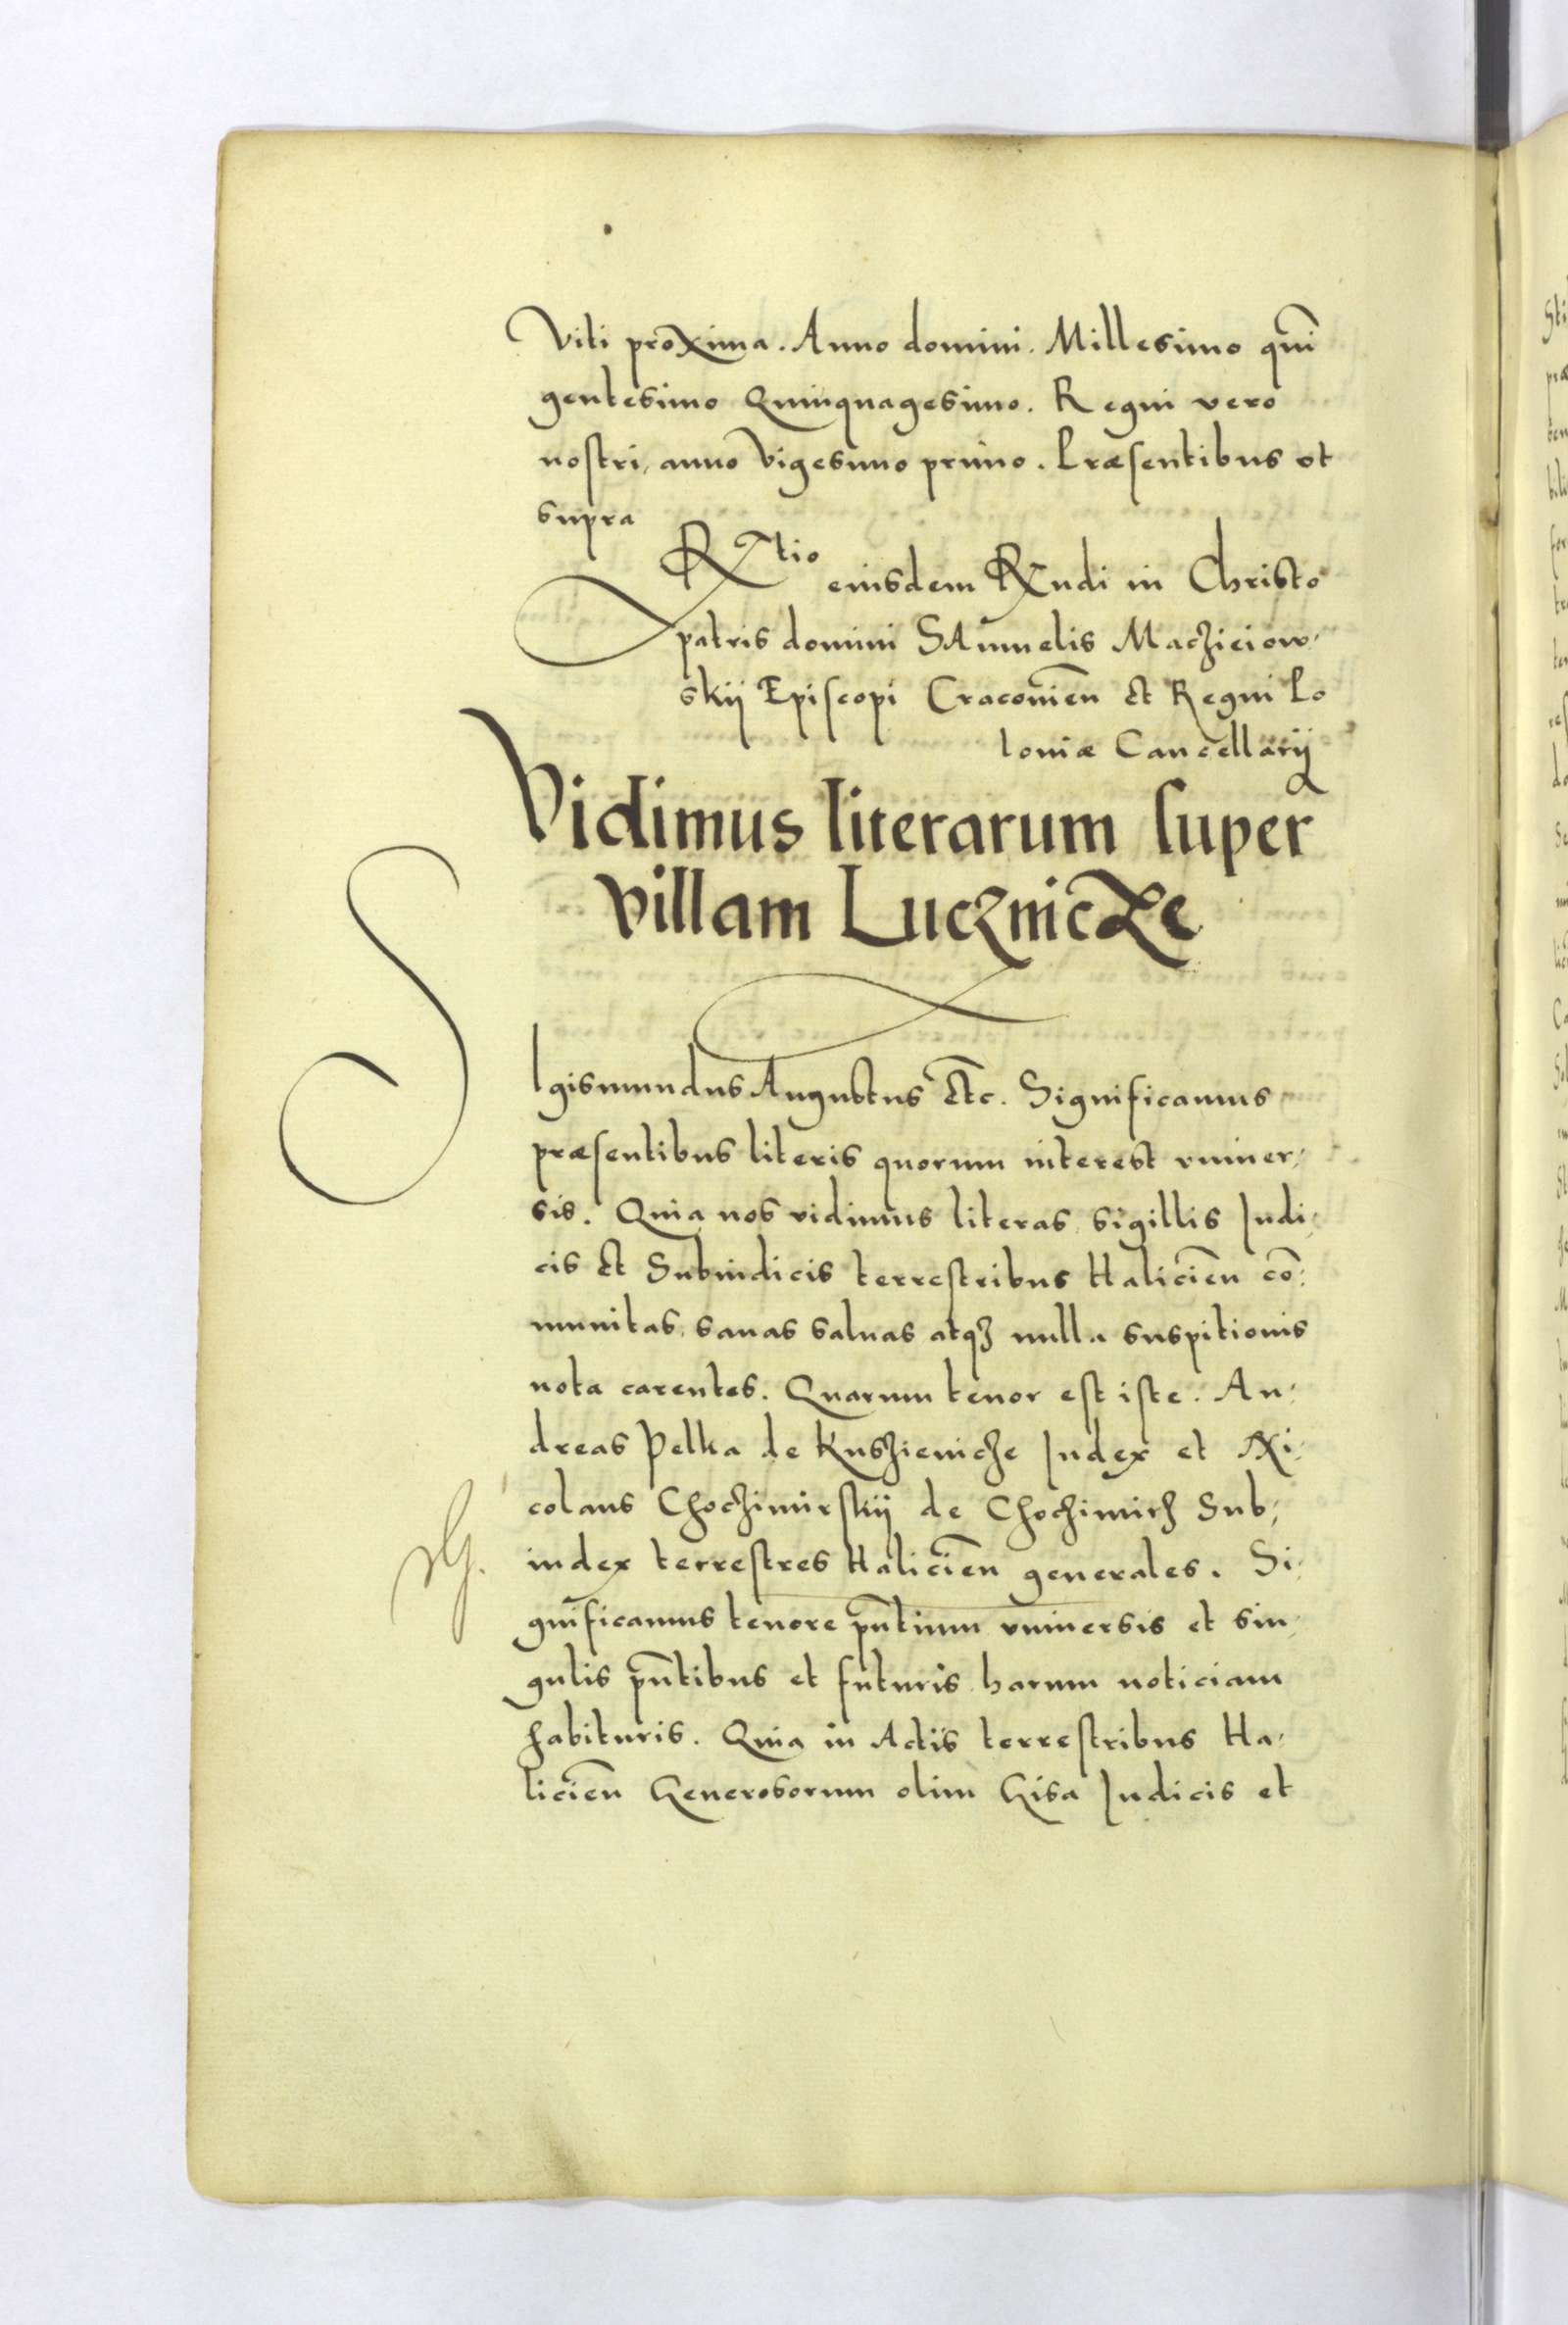 Viti proxima. Anno domini. Millesimo quin̄
gentesimo Quinquagesimo. Regni vero
nostri, anno Vigesimo primo. Præsentibus vt
supra
R̃tio eiusdem Rx̃ndi in Christo
patris domini SAmuelis Macziciow-
skij Episcopi Cracovien̄ et Regni Po
loniæ Cancellarij
Vidimus literarum super
villam Lucznicze
SIgismundus Augustus Etc̄. Significamus
præsentibus literis quorum interest vniuer-
sis. Quia nos vidimus literas sigillis Iudi-
cis et Subiudicis terrestribus Halicien̄ cō-
munitas, sanas saluas atqʒ nulla suspitionis
nota carentes. Quarum tenor est iste. An-
dreas Pelka de Kuszienicze Iudex et Ni-
colaus Choczimirskij de Choczimirz Sub-
iudex terrestres Halicien̄ generales. Si-
gnificamus tenore pn̄tium vniuersis et sin-
gulis pn̄tibus et futuris harum noticiam
habituris. Quia in Actis terrestribus Ha-
licien̄ Generosorum olim Gisa Iudicis et